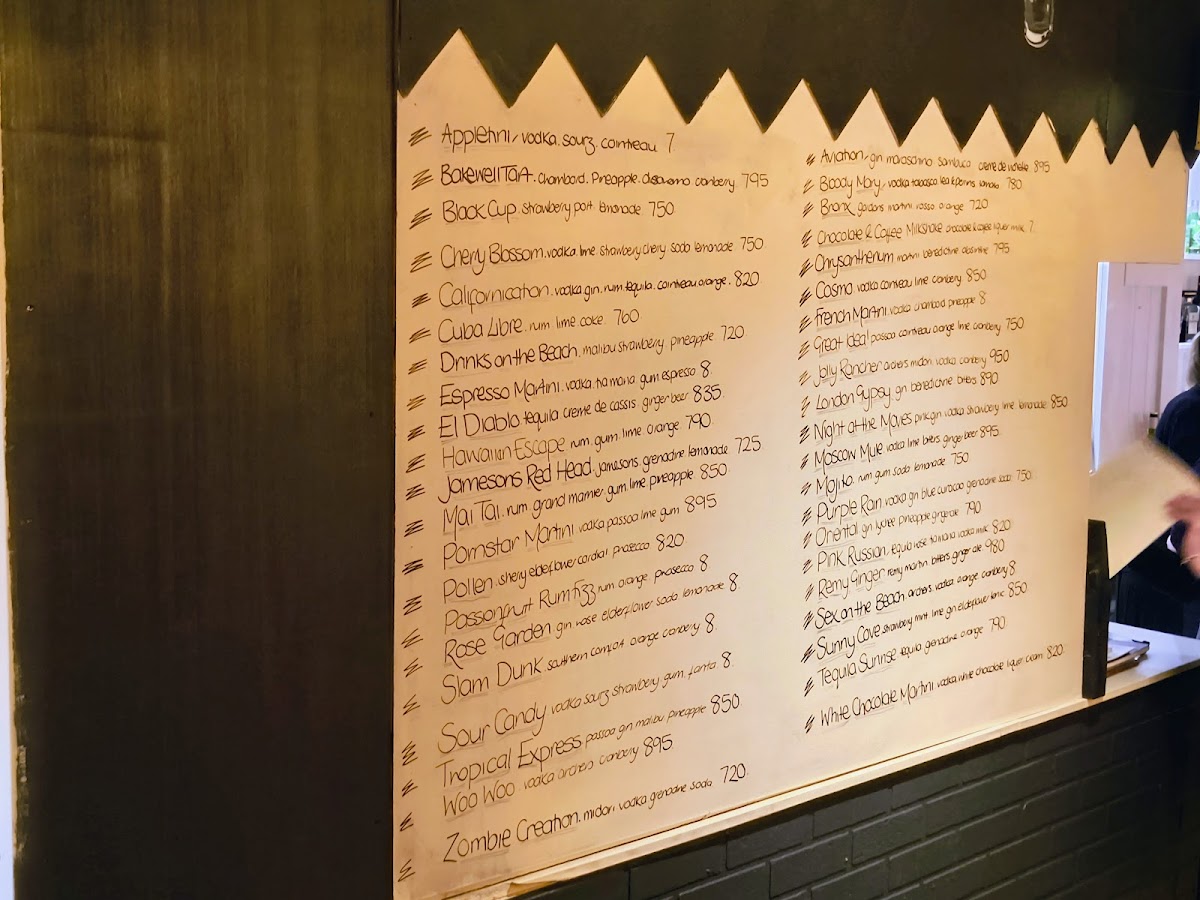 Appletini, vodka, sourz, cointreau 7
Bakewell Tart. chambord. pineapple. disaronno. cranberry. 795
Black Cup. strawberry port. lemonade 750
Cherry Blossom. vodka. lime. strawberry. cherry. soda lemonade 750
Californication. vodka. gin. rum. tequila. cointreau. orange. 820
Cuba Libre. rum lime coke. 760
Drinks on the Beach. malibu strawberry pineapple 720
Espresso Martini. vodka. tia maria gum espresso 8.
El Diablo tequila creme de cassis ginger beer 835
Hawaiian Escape rum. gum. lime orange 790
Jamesons Red Head. jamesons. grenadine lemonade 725
Mai Tai. rum. grand marnier. gum. lime pineapple. 850
Pornstar Martini vodka passoa lime gum 895
Pollen. sherry elderflower cordial prosecco 820
Passionfruit Rum Fizz rum orange prosecco 8
Rose Garden gin rose elderflower soda lemonade 8.
Slam Dunk southern comfort orange cranberry 8.
Sour Candy vodka sourz strawberry gum. fanta 8
Tropical Express passoa gin malibu pineapple 850
Woo Woo vodka archers cranberry 895
Zombie Creation. midori vodka grenadine soda 720
Aviation, gin maraschino sambuca creme de violette 895
Bloody Mary, vodka tabasco lea & perrins tomato 780
Bronx. gordons martini rosso orange 720
Chocolate & Coffee Milkshake chocolate & coffee liquer milk 7.
Chrysanthenum martini benedictine absinthe 795
Cosmo vodka cointreau lime cranberry. 850
French Martini. vodka chambord pineapple 8
Great Idea! passoa cointreau orange lime cranberry 750
Jolly Rancher archers midori vodka. cranberry 950
London Gypsy. gin benedictine bitters 890
Night at the Movies pink gin vodka strawberry lime lemonade 850
Moscow Mule vodka lime bitters ginger beer 895
Mojito. rum gum soda lemonade 750
Purple Rain vodka gin blue curacao grenadine soda 750
Oriental gin lychee pineapple ginger ale 790
Pink Russian. tequila rose tia maria vodka milk 820
Remy Ginger remy martin bitters ginger ale 980
Sex on the Beach archers vodka orange cranberry 8
Sunny Cove strawberry mint lime gin elderflower tonic 850
Tequila Sunrise tequila. grenadine orange 790
White Chocolate Martini vodka. white chocolate liquer cream 820